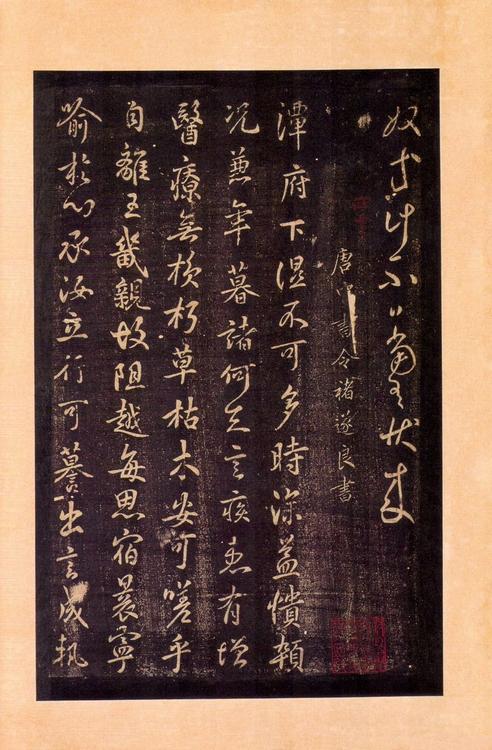 唐中書令褚遂良書
潭府下湿不可多時深益憒頓
况兼年暮諸何足言疾恙有增
醫療無損朽草枯木安可嗟乎
自離王畿親故阻越每思宿寧
喻於心承汝立行可慕出言成執